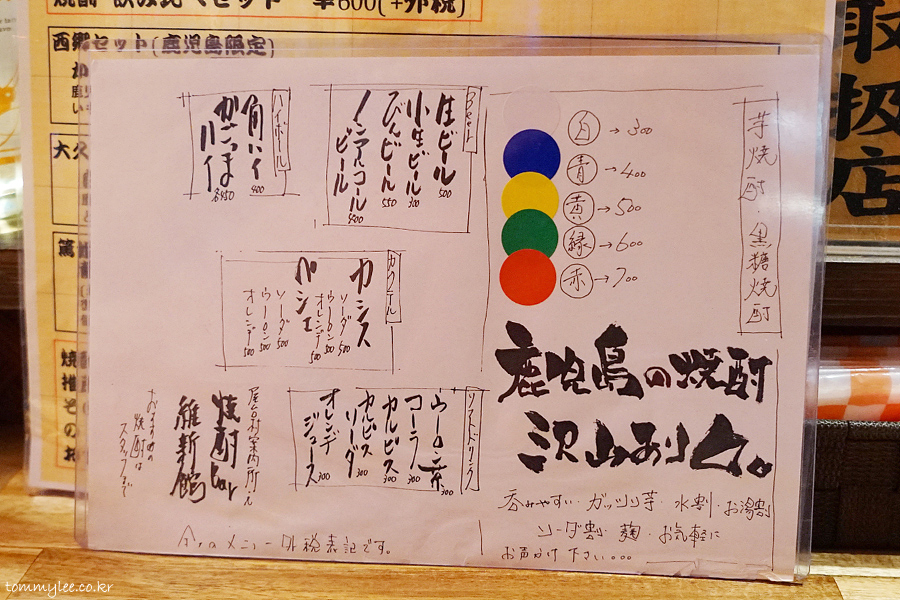 焼酎 飲み比べセット 一律600(+外税)
西郷セット(鹿児島限定)
大久
篤
焼
推
そ
の
お
取扱店
芋焼酎・黒糖焼酎
白→300
青→400
黄→500
緑→600
赤→700
鹿児島の焼酎
沢山あります。
呑みやすい・ガッツリ芋・水割・お湯割
ソーダ割・麹・お気軽に
お声がけ下さい。。。
Beer
生ビール 500
小生ビール 300
びんビール 550
ノンアルコールビール 400
ハイボール
角ハイ 400
さつまハイ 450
カクテル
カシス
ソーダ 500
ウーロン 500
オレンヂ 500
ペシェ
ソーダ 500
ウーロン 500
オレンヂ 500
ソフトドリンク
ウーロン茶 300
コーラ 300
カルピス 300
カルピスソーダ 300
オレンヂジュース 300
屋台村案内所・え
焼酎bar
維新館
おすすめの
焼酎は
スタッフまで
全てのメニュー外税表記です。
tommylee.co.kr